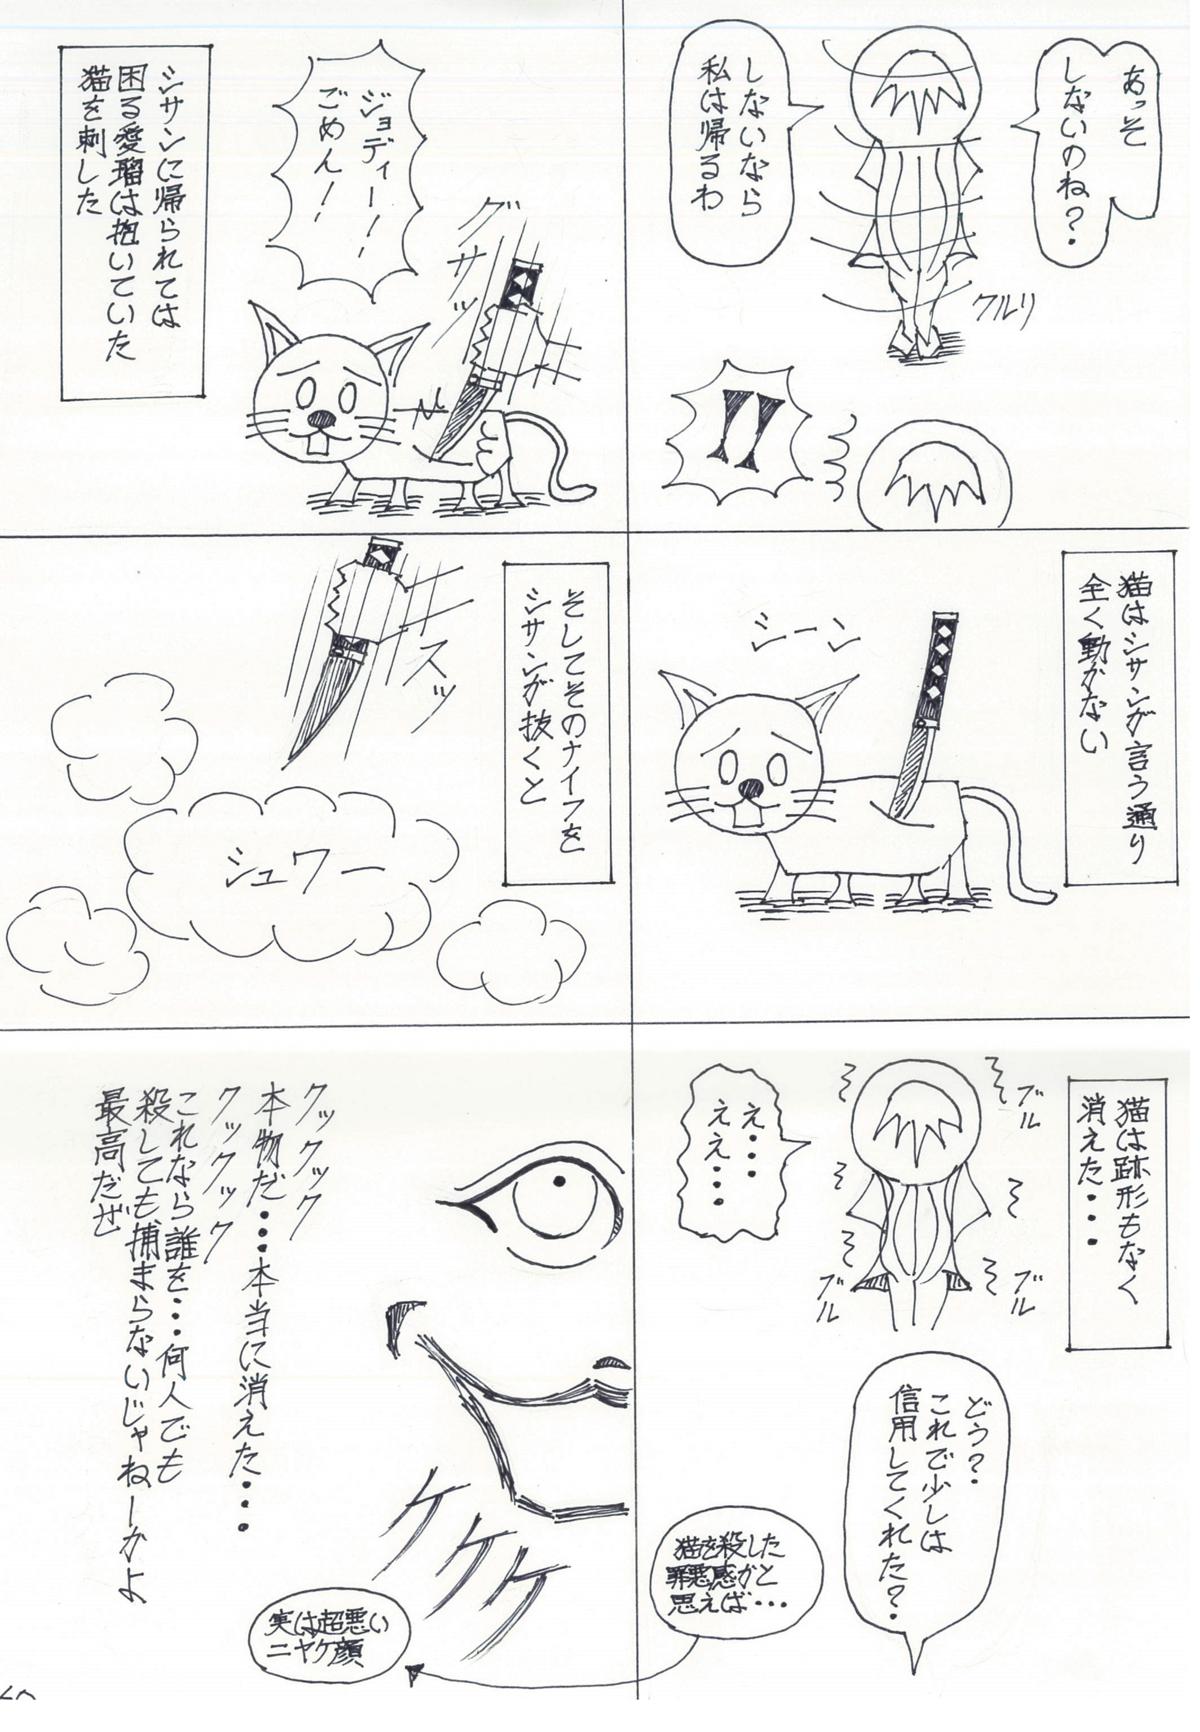 あっそ
しないのね？
しないなら
私は帰るわ
クルリ
ジョディー！
ごめん！
グサッ
シサンに帰られては
困る愛瑠は抱いていた
猫を刺した
猫はシサンが言う通り
全く動かない
シーン
そしてそのナイフを
シサンが抜くと
スッ
シュワー
猫は跡形もなく
消えた・・・
ブル
ブル
ブル
え・・・
ええ・・・
どう？
これで少しは
信用してくれた？
猫を殺した
罪悪感かと
思えば・・・
クックックック
本物だ・・・本当に消えた・・・
クックックック
これなら誰を・・・何人でも
殺しても捕まらないじゃねーかよ
最高だぜ
ケケケケ
実は超悪い
ニヤケ顔